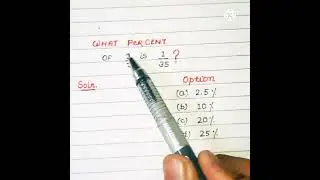 WHAT PERCENT
OF IS 1/35 ?
Soln. Option
(a) 2.5 %
(b) 10 %
(c) 20 %
(d) 25 %